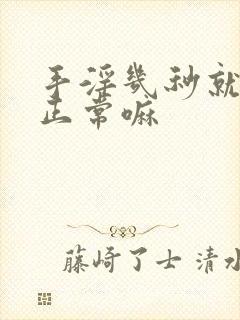 手淫几秒就
正常嘛
藤崎了士 清水